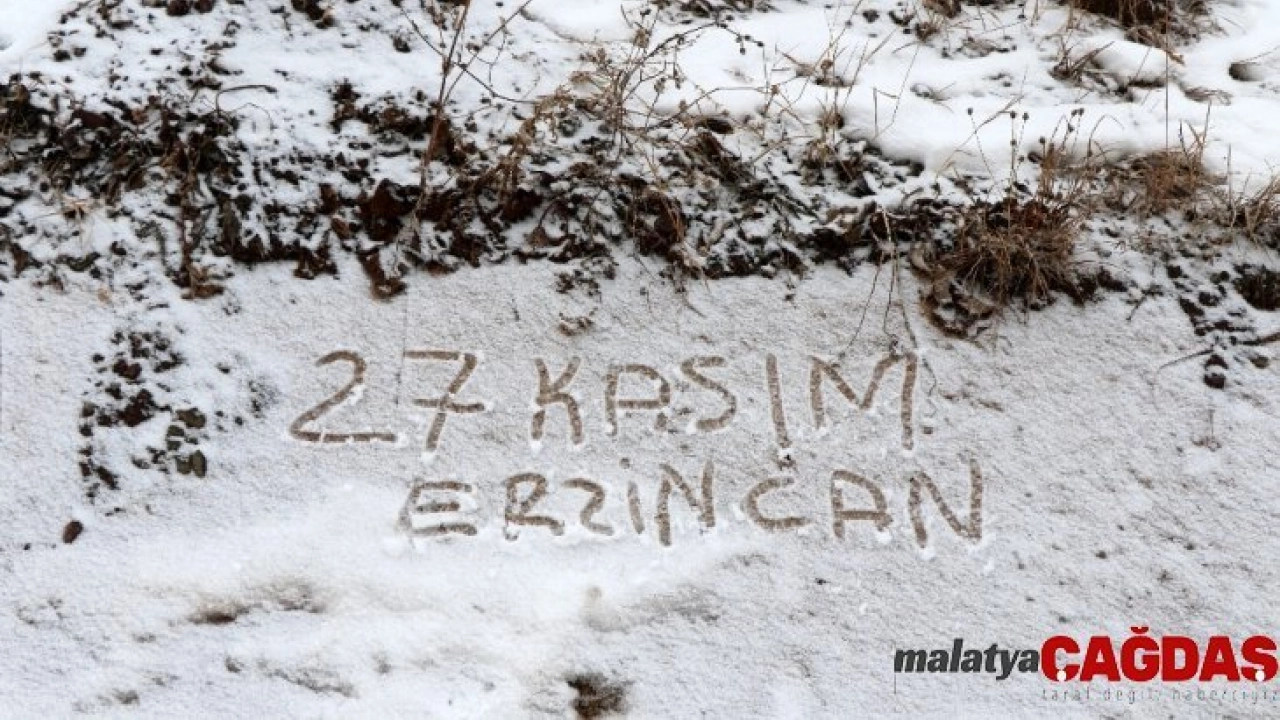 27 KASIM
ERZINCAN
malatya ÇAĞDAŞ
taraf değil, haberciyiz